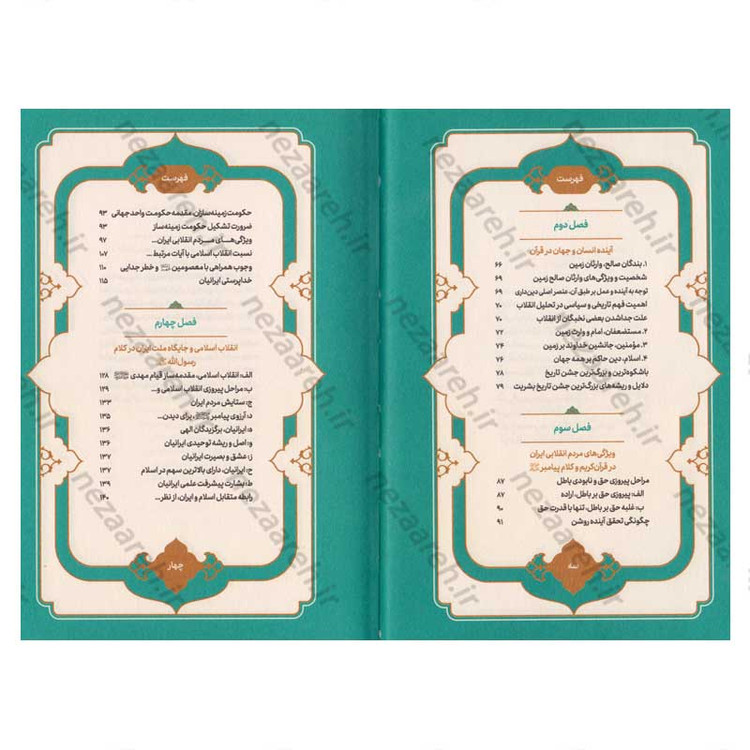 فهرست
فصل دوم
آینده انسان و جهان در قرآن:
۱. بندگان صالح، وارثان زمین ۶۶
شخصیت و ویژگی‌های وارثان صالح زمین ۶۹
توجه به آینده و عمل بر طبق آن، عنصر اصلی دین‌داری ۶۹
اهمیت فهم تاریخی و سیاسی در تحلیل انقلاب ۷۰
علت جداشدن بعضی نخبگان از انقلاب ۷۰
۲. مستضعفان، امام و وارث زمین ۷۲
۳. مؤمنین، جانشین خداوند بر زمین ۷۴
۴. اسلام، دین حاکم بر همه جهان ۷۶
باشکوه‌ترین و بزرگ‌ترین جشن تاریخ ۷۸
دلایل و ریشه‌های بزرگ‌ترین جشن تاریخ بشریت ۷۹
فصل سوم
ویژگی‌های مردم انقلابی ایران
در قرآن‌کریم و کلام پیامبر ﷺ
مراحل پیروزی حق و نابودی باطل ۸۷
الف: پیروزی حق بر باطل، اراده ۸۷
ب: غلبه حق بر باطل، تنها با قدرت حق ۹۰
چگونگی تحقق آینده روشن ۹۱
سه
فهرست
حکومت زمینه‌سازان، مقدمه حکومت واحد جهانی ۹۳
ضرورت تشکیل حکومت زمینه‌ساز ۹۳
ویژگی‌های مردم انقلابی ایران... ۹۷
نسبت انقلاب اسلامی با آیات مرتبط ... ۱۰۷
وجوب همراهی با معصومین و خطر جدایی ۱۱۰
خداپرستی ایرانیان ۱۱۵
فصل چهارم
انقلاب اسلامی و جایگاه ملت ایران در کلام
رسول‌الله ﷺ
الف: انقلاب اسلامی، مقدمه‌ساز قیام مهدی ۱۲۸
ب: مراحل پیروزی انقلاب اسلامی و... ۱۲۹
ج: ستایش مردم ایران ۱۳۳
د: آرزوی پیامبر ﷺ، برای دیدن... ۱۳۵
ه: ایرانیان، برگزیدگان الهی ۱۳۶
و: اصل و ریشه توحیدی ایرانیان ۱۳۶
ز: عشق و بصیرت ایرانیان ۱۳۷
ح: ایرانیان، دارای بالاترین سهم در اسلام ۱۳۷
ط: بشارت پیشرفت علمی ایرانیان ۱۳۹
رابطه متقابل اسلام و ایران، از نظر... ۱۴۰
چهار
nezaareh.ir